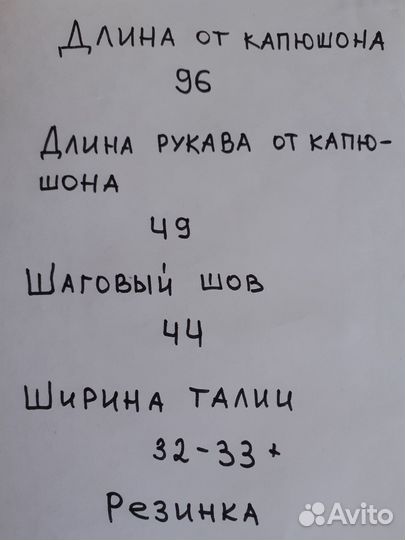 Длина от капюшона
96
Длина рукава от капю-
шона
49
Шаговый шов
44
Ширина талии
32-33 +
Резинка
Avito